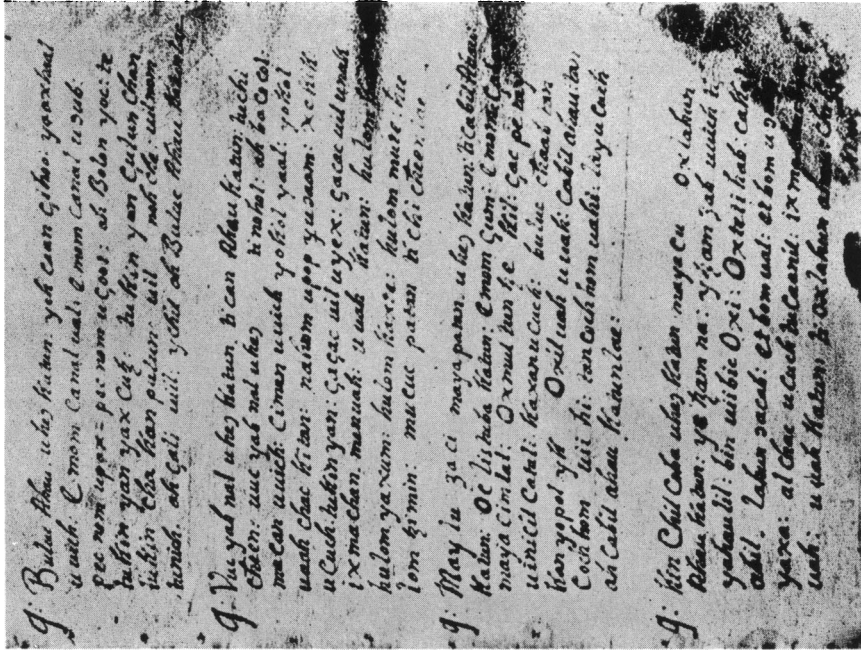 q: Buluc Ahau. u heɔ katun. ych caan çihoo: yaxhaal
u uich. Emom canal ual: Emom canal u ɔub:
pec nom u pax= pec nom u çoot: ah Bolon yoc: te
tu kin yan yax cutz: tu kin yan Çulun Chan
tu kin chakan putun: uil nob che uil nom
tunich. ah çati uil: ychil ah Buluc Ahau Katunlae
q: Vuc yab nal u heɔ katun. ti can Ahau Katun: uchi
cheen: uuc yab nal u heɔ ti nohol: ah ba co col:
macan uuich: Cimen uuich yokol yaal: yokol
uaah chac hi tan: nahom u pop yuɔaam: x chik
u cuch: tukin yan: çaçac uil uyex: çaçac uil u nok
ixma chan manuah: u uah katun: hulom
hulom yaxum: hulom kaxte: hulom mule: hu
lom tzimin: mucuc patan ti chi cheen: lae
q: May lu zaci mayapan. u heɔ katun: ti cabil Ahau:
Katun: Oc lis taba Katun: Emom Çum: Emom Çab
maya cimlal: Oxmul tun tzek hil: Çac petay
uinicil Cabal: kaxan u cuch: buluc chaab tan
kan yopol yk Oxil uah u uah: Cabil
Coch hom uil hi: tancoch hom uahi: lay u cuch
ah Cabil ahau katunlae:
q: kin Chil Coba u heɔ katun maya cu Oxlahun
Ahau katun: ytzam na: ytzam zab uich tz
yahaulil: bin uiibic Oxi: Oxteti hab
abil. lahun ɔacab: etbom ual: et bom u
yaxa: al chac u cuch tu caanil: ixma
uah: u uah katun: ti oxlahun ahau